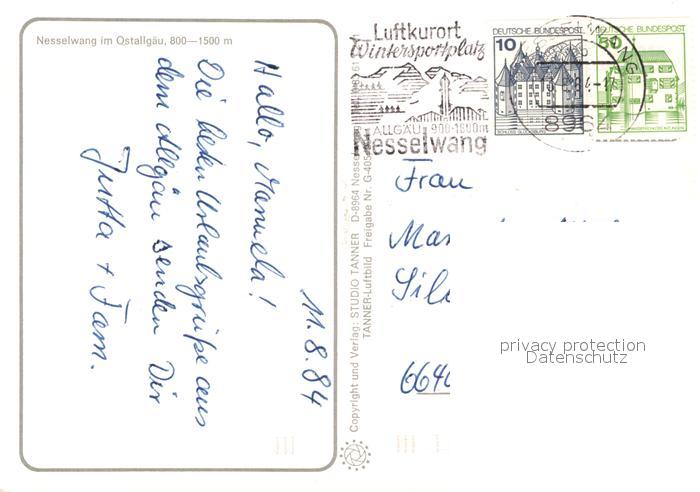 Nesselwang im Ostallgäu, 800—1500 m
11.8.84
Hallo, Manuela!
Die besten Urlaubsgrüße aus
dem Allgäu senden Dir
Jutta + Fam.
Copyright und Verlag: STUDIO TANNER D-8964 Nesselwang
TANNER-Luftbild Freigabe Nr. G-4
Luftkurort
Wintersportplatz
ALLGÄU 900-1600m
Nesselwang
DEUTSCHE BUNDESPOST
10
SCHLOSS GLÜCKSBURG
DEUTSCHE BUNDESPOST
896
Frau
privacy protection
Datenschutz
664